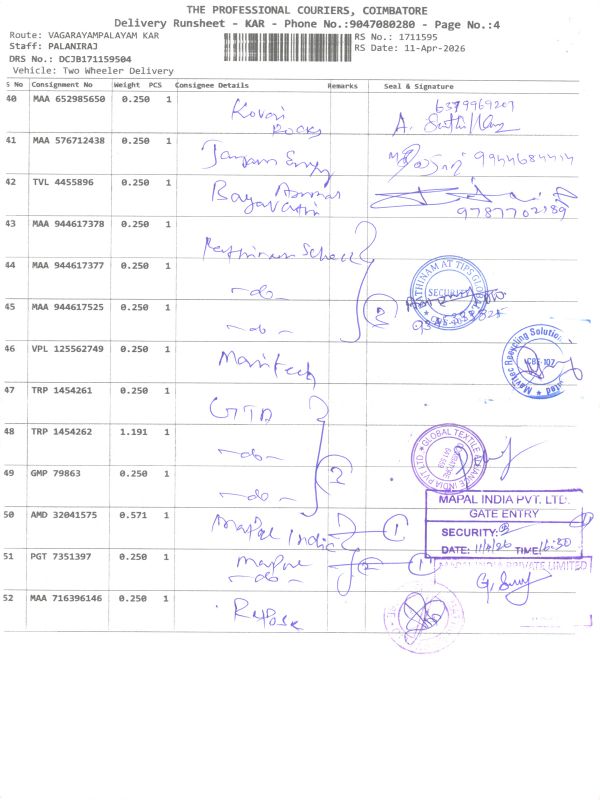 THE PROFESSIONAL COURIERS, COIMBATORE
Delivery Runsheet - KAR - Phone No.:9047080280 - Page No.:4
Route: VAGARAYAMPALAYAM KAR
RS No.: 1711595
Staff: PALANIRAJ
RS Date: 11-Apr-2026
DRS No.: DCJB171159504
Vehicle: Two Wheeler Delivery
S No Consignment No Weight PCS Consignee Details Remarks Seal & Signature
40 MAA 652985650 0.250 1 Kovai Rocks
41 MAA 576712438 0.250 1
9944684414
42 TVL 4455896 0.250 1
9787702189
43 MAA 944617378 0.250 1 Rathinam School
44 MAA 944617377 0.250 1 -do-
SECURITY
45 MAA 944617525 0.250 1 -do- 3
46 VPL 125562749 0.250 1 Mavitech
Mavitec Recycling Solution
47 TRP 1454261 0.250 1 GTA
48 TRP 1454262 1.191 1 -do-
GLOBAL TEXTILE ALLIANCE INDIA PVT LTD
49 GMP 79863 0.250 1 -do-
MAPAL INDIA PVT. LTD.
GATE ENTRY
50 AMD 32041575 0.571 1 Mapal India 1
SECURITY:
DATE: 11/4/26 TIME 16:30
51 PGT 7351397 0.250 1 Mapal
-do-
MAPAL INDIA PRIVATE LIMITED
52 MAA 716396146 0.250 1 Repose